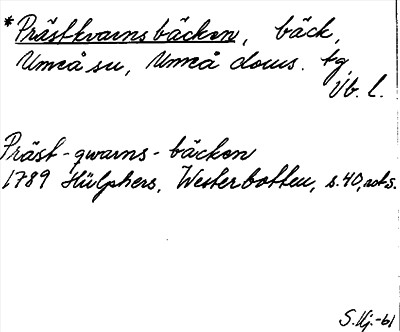 *Prästkvarnsbäcken, bäck,
Umeå sn, Umeå doms. tg,
Vb. l.
Präst-qwarns-bäcken
1789 Hülphers, Westerbotten, s.40, not s.
S.Uj.-61